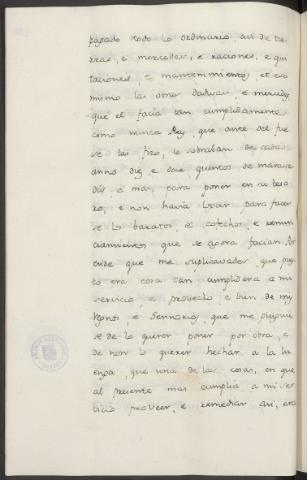 pagado todo lo ordinario, asi de tie
rras, e mercedes, e raciones, e qui
taciones, e mantenimientos, et eso
mismo las otras dadivas, e mercedes
que el facia tan cumplidamente
como nunca Rey, que ante del fue
se las fizo, le sobraban de cada
anno diez, e doce quentos de marave
dis, e mas, para poner en su teso
ro, e non havia logar para facer
se los baratos, e cohechos, e renun
ciamientos que se agora facian. Por
ende que me suplicavades, que pues
to era cosa tan cumplidera a mi
servicio, e provecho, e bien de mis
Regnos, e Sennorios, que me pluguie
se de lo querer poner por obra, e
de non lo querer hechar a la lu
enga, que una de las cosas, en que
al presente mas cumplia a mi ser
vicio proveer, e remediar, asi, era